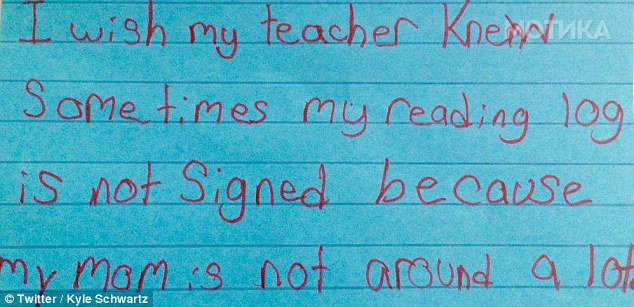 I wish my teacher Knew
МОТИКА
Sometimes my reading log
is not Signed because
my mom is not around a lot
© Twitter / Kyle Schwartz